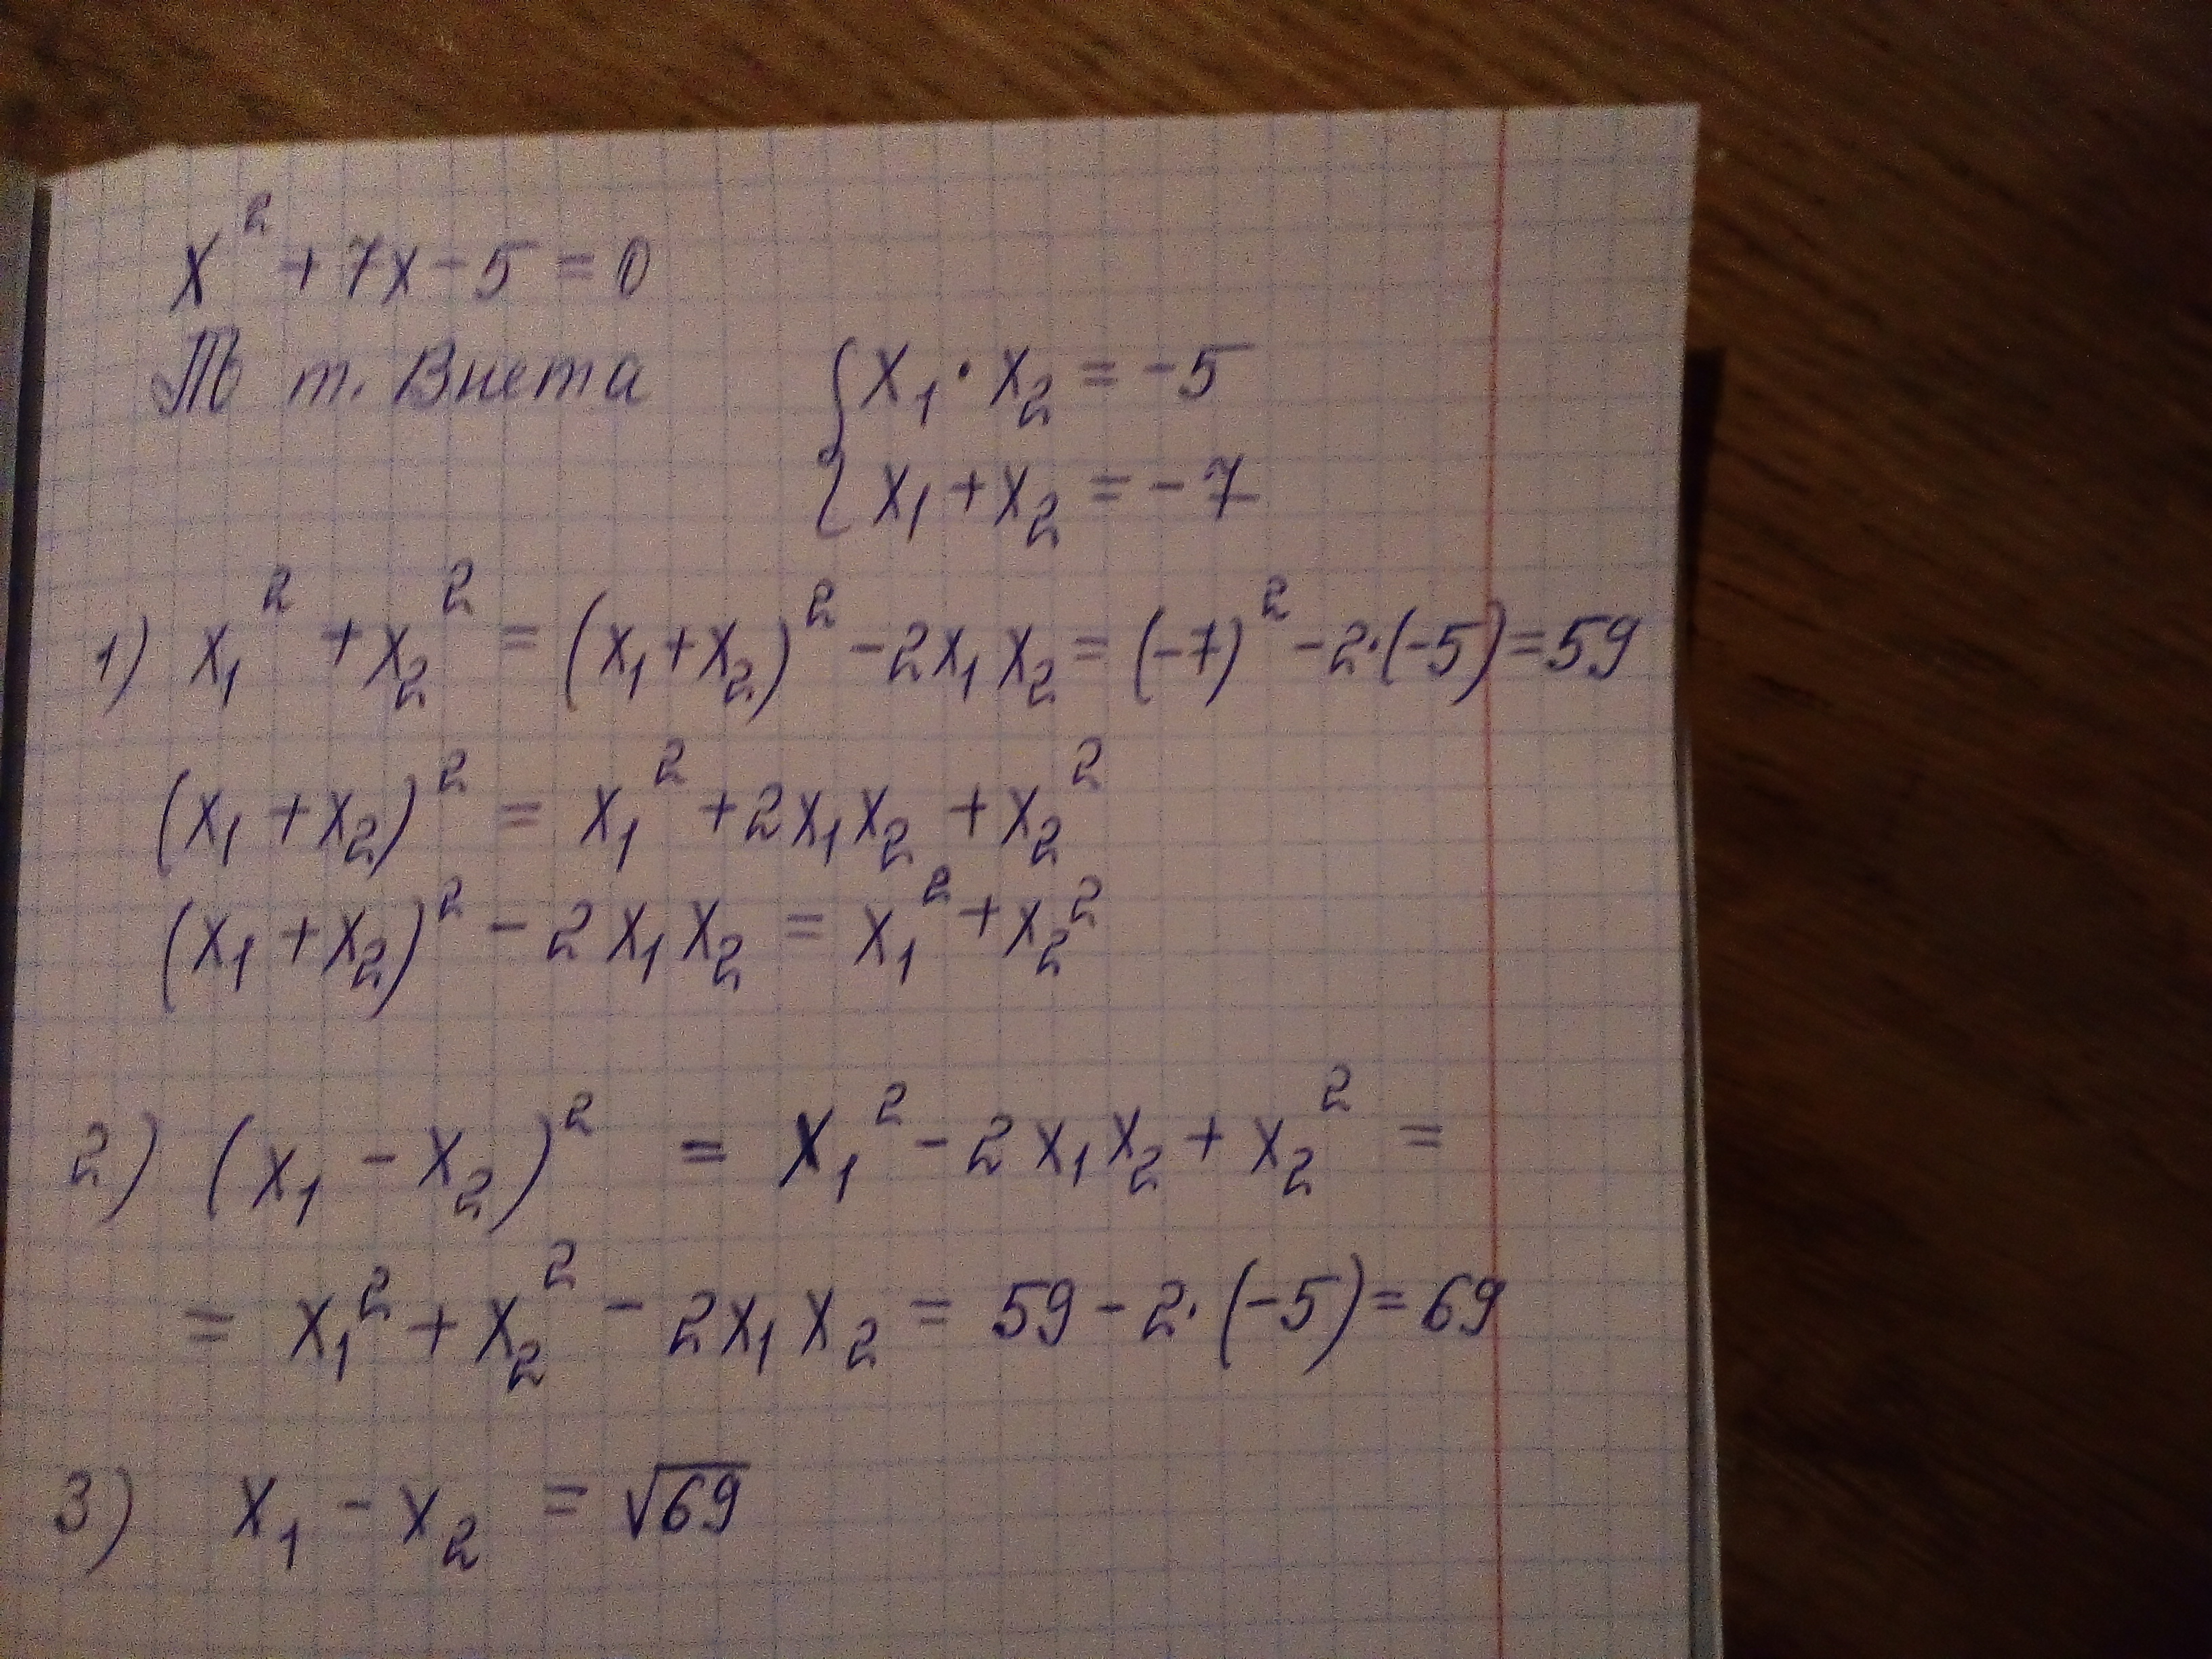 x² + 7x - 5 = 0
т. Виета
{ x₁ · x₂ = -5
x₁ + x₂ = -7
1) x₁² + x₂² = (x₁ + x₂)² - 2x₁x₂ = (-7)² - 2·(-5) = 59
(x₁ + x₂)² = x₁² + 2x₁x₂ + x₂²
(x₁ + x₂)² - 2x₁x₂ = x₁² + x₂²
2) (x₁ - x₂)² = x₁² - 2x₁x₂ + x₂² =
= x₁² + x₂² - 2x₁x₂ = 59 - 2·(-5) = 69
3) x₁ - x₂ = √69